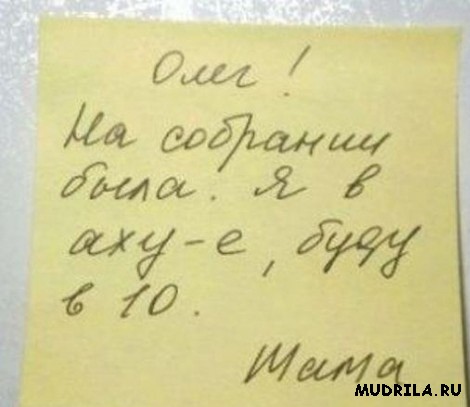 Олег!
На собрании
была. Я в
аху-е, буду
в 10.
Мама
MUDRILA.RU